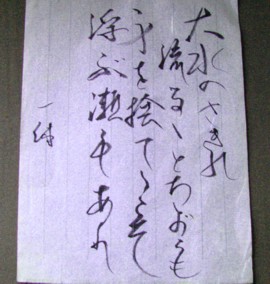 大水のさきに
流るゝとちがらも
身を捨てゝこそ
浮ぶ瀬もあれ
一休